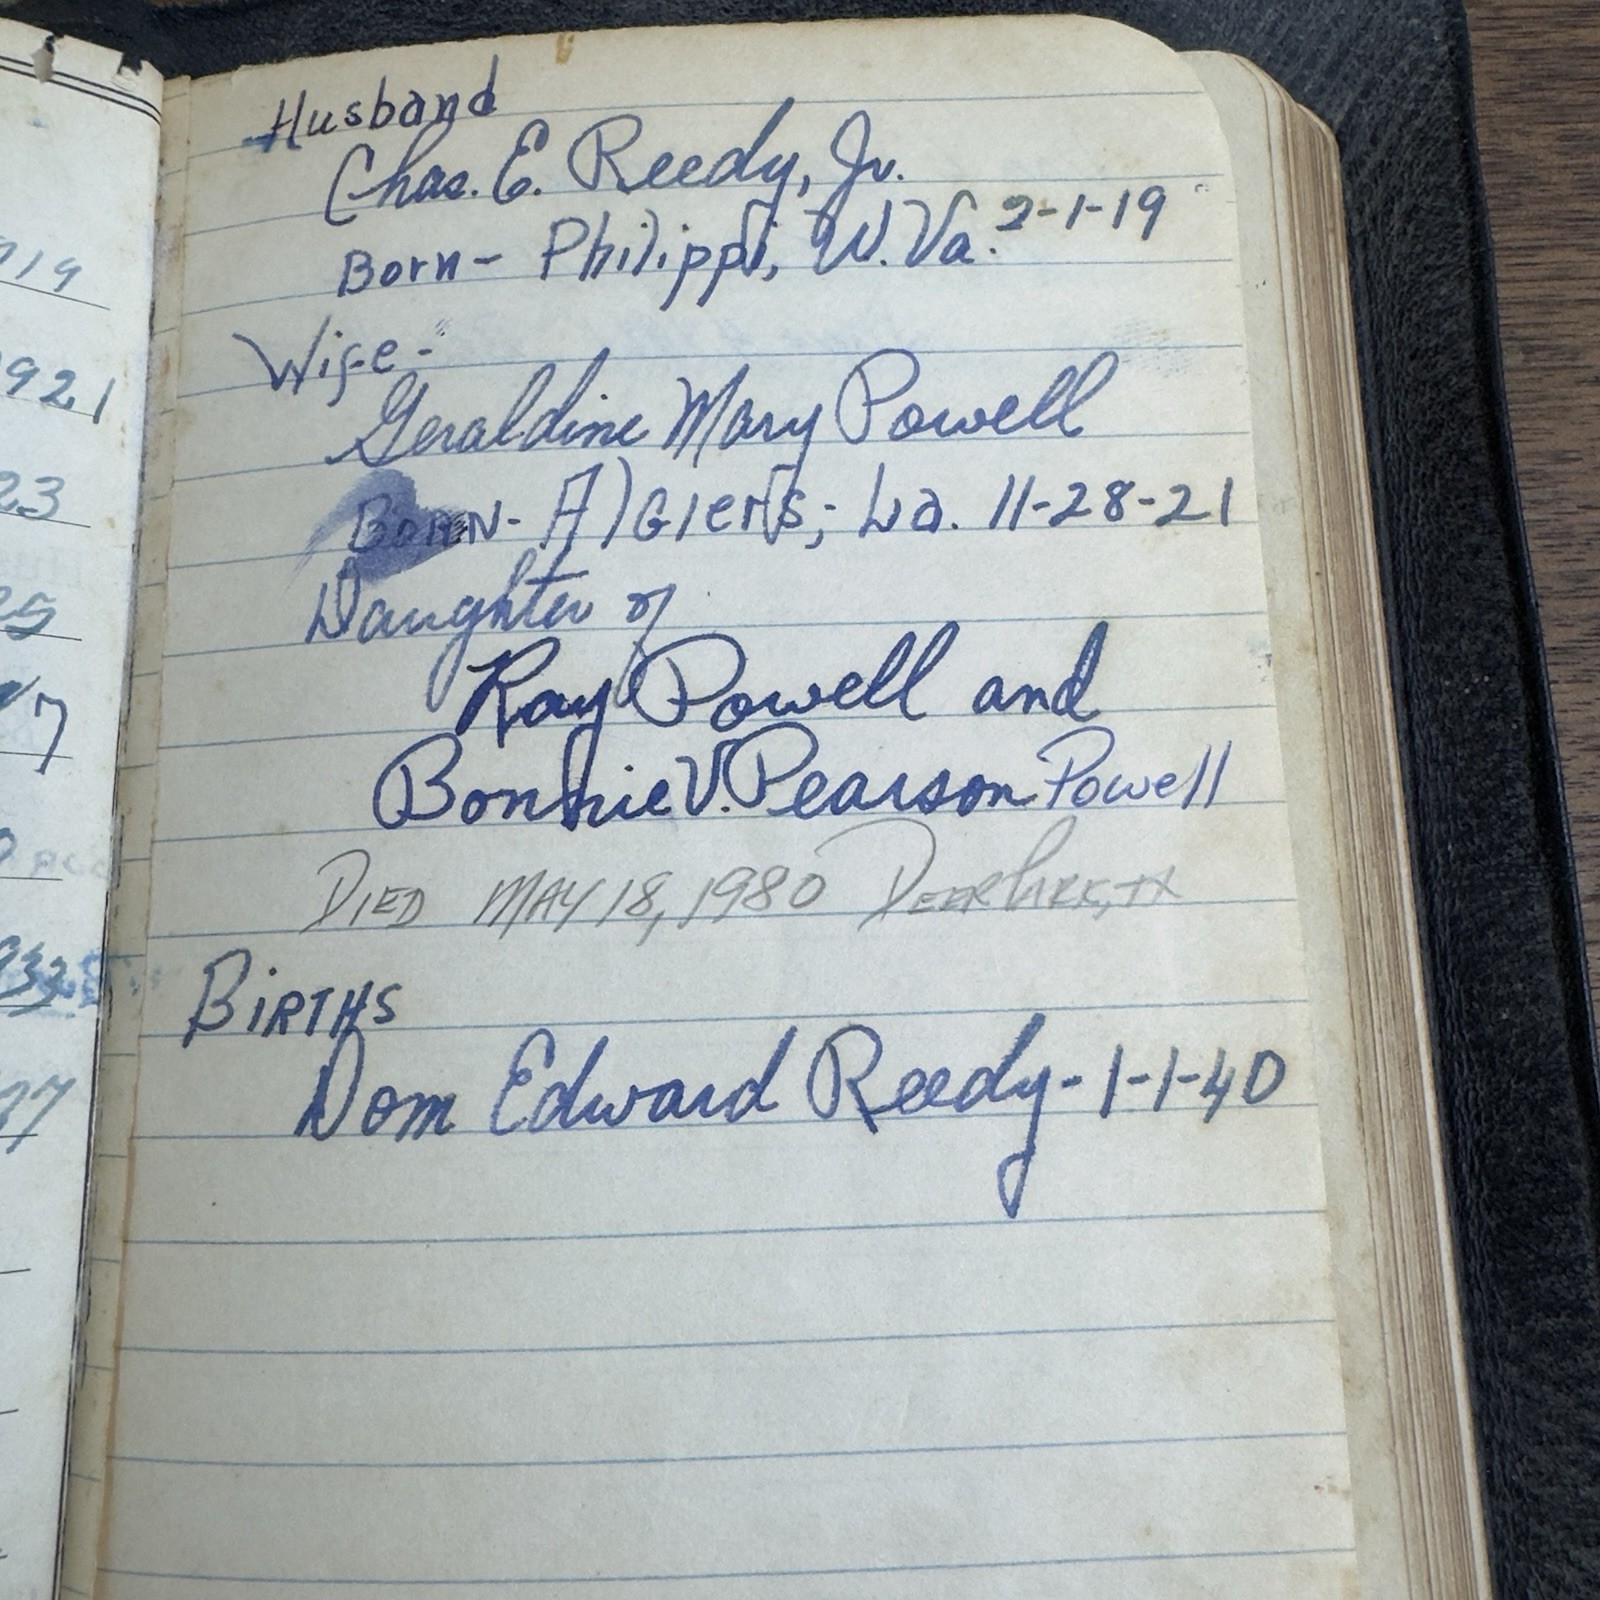 Husband
Chas. E. Reedy, Jr.
Born- Philippi, W.Va. 2-1-19
Wife-
Geraldine Mary Powell
BORN- AlGIers, La. 11-28-21
Daughter of
Ray Powell and
Bonnie V. Pearson Powell
DIED MAY 18, 1980 DEER PARK, TX
BIRTHS
Dom Edward Reedy- 1-1-40
919
921
23
25
7
933